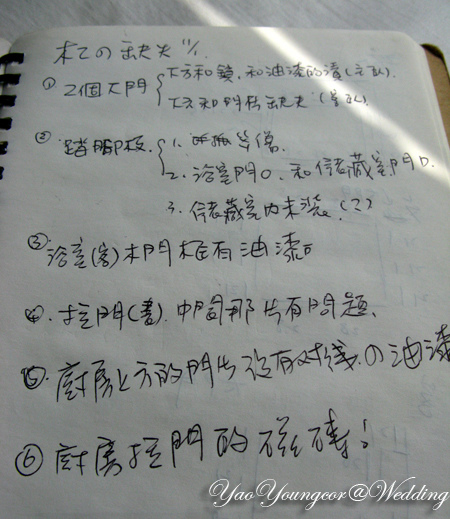 木工の缺失 11/1.
① 2個大門 下方和鏡,和油漆的漬(主臥).
下方和門片缺失(主臥)
② 踏腳板. 1.
2. 浴室門口.和儲藏室門口.
3. 儲藏室內未裝。(2)
③ 浴室(客)木門框有油漆
④. 拉門(書).中間那片有問題、
⑤. 廚房上方的門片沒有对线.の油漆
⑥ 廚房拉門的磁磚!
Yao Youngcor@Wedding